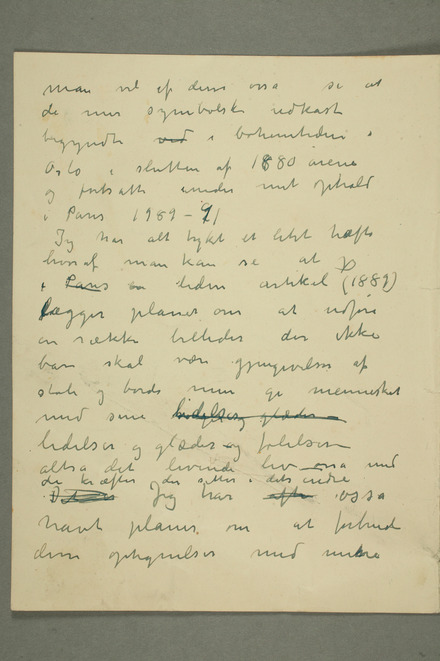 man vil af dem ossa se at
de mer symbolske udkast
begyndte ved i bohemtiden i
Oslo i slutten af 1880 årene
og fortsatte under mit ophold
i Paris 1989-91
Jeg har alt trykt et litet hæfte
hvoraf man kan se at
i Paris en liden artikel (1889)
lægger planer om at udføre
en række billeder der ikke
bare skal være gjengivelser af
stole og borde men gi mennesket
med sine lidelser og glæder
lidelser og glæder og følelser
altså det levende liv ossa med
de kræfter der sitter i dets indre
Jeg har efter ossa
havt planer om at forbinde
dem optegnelser med mere